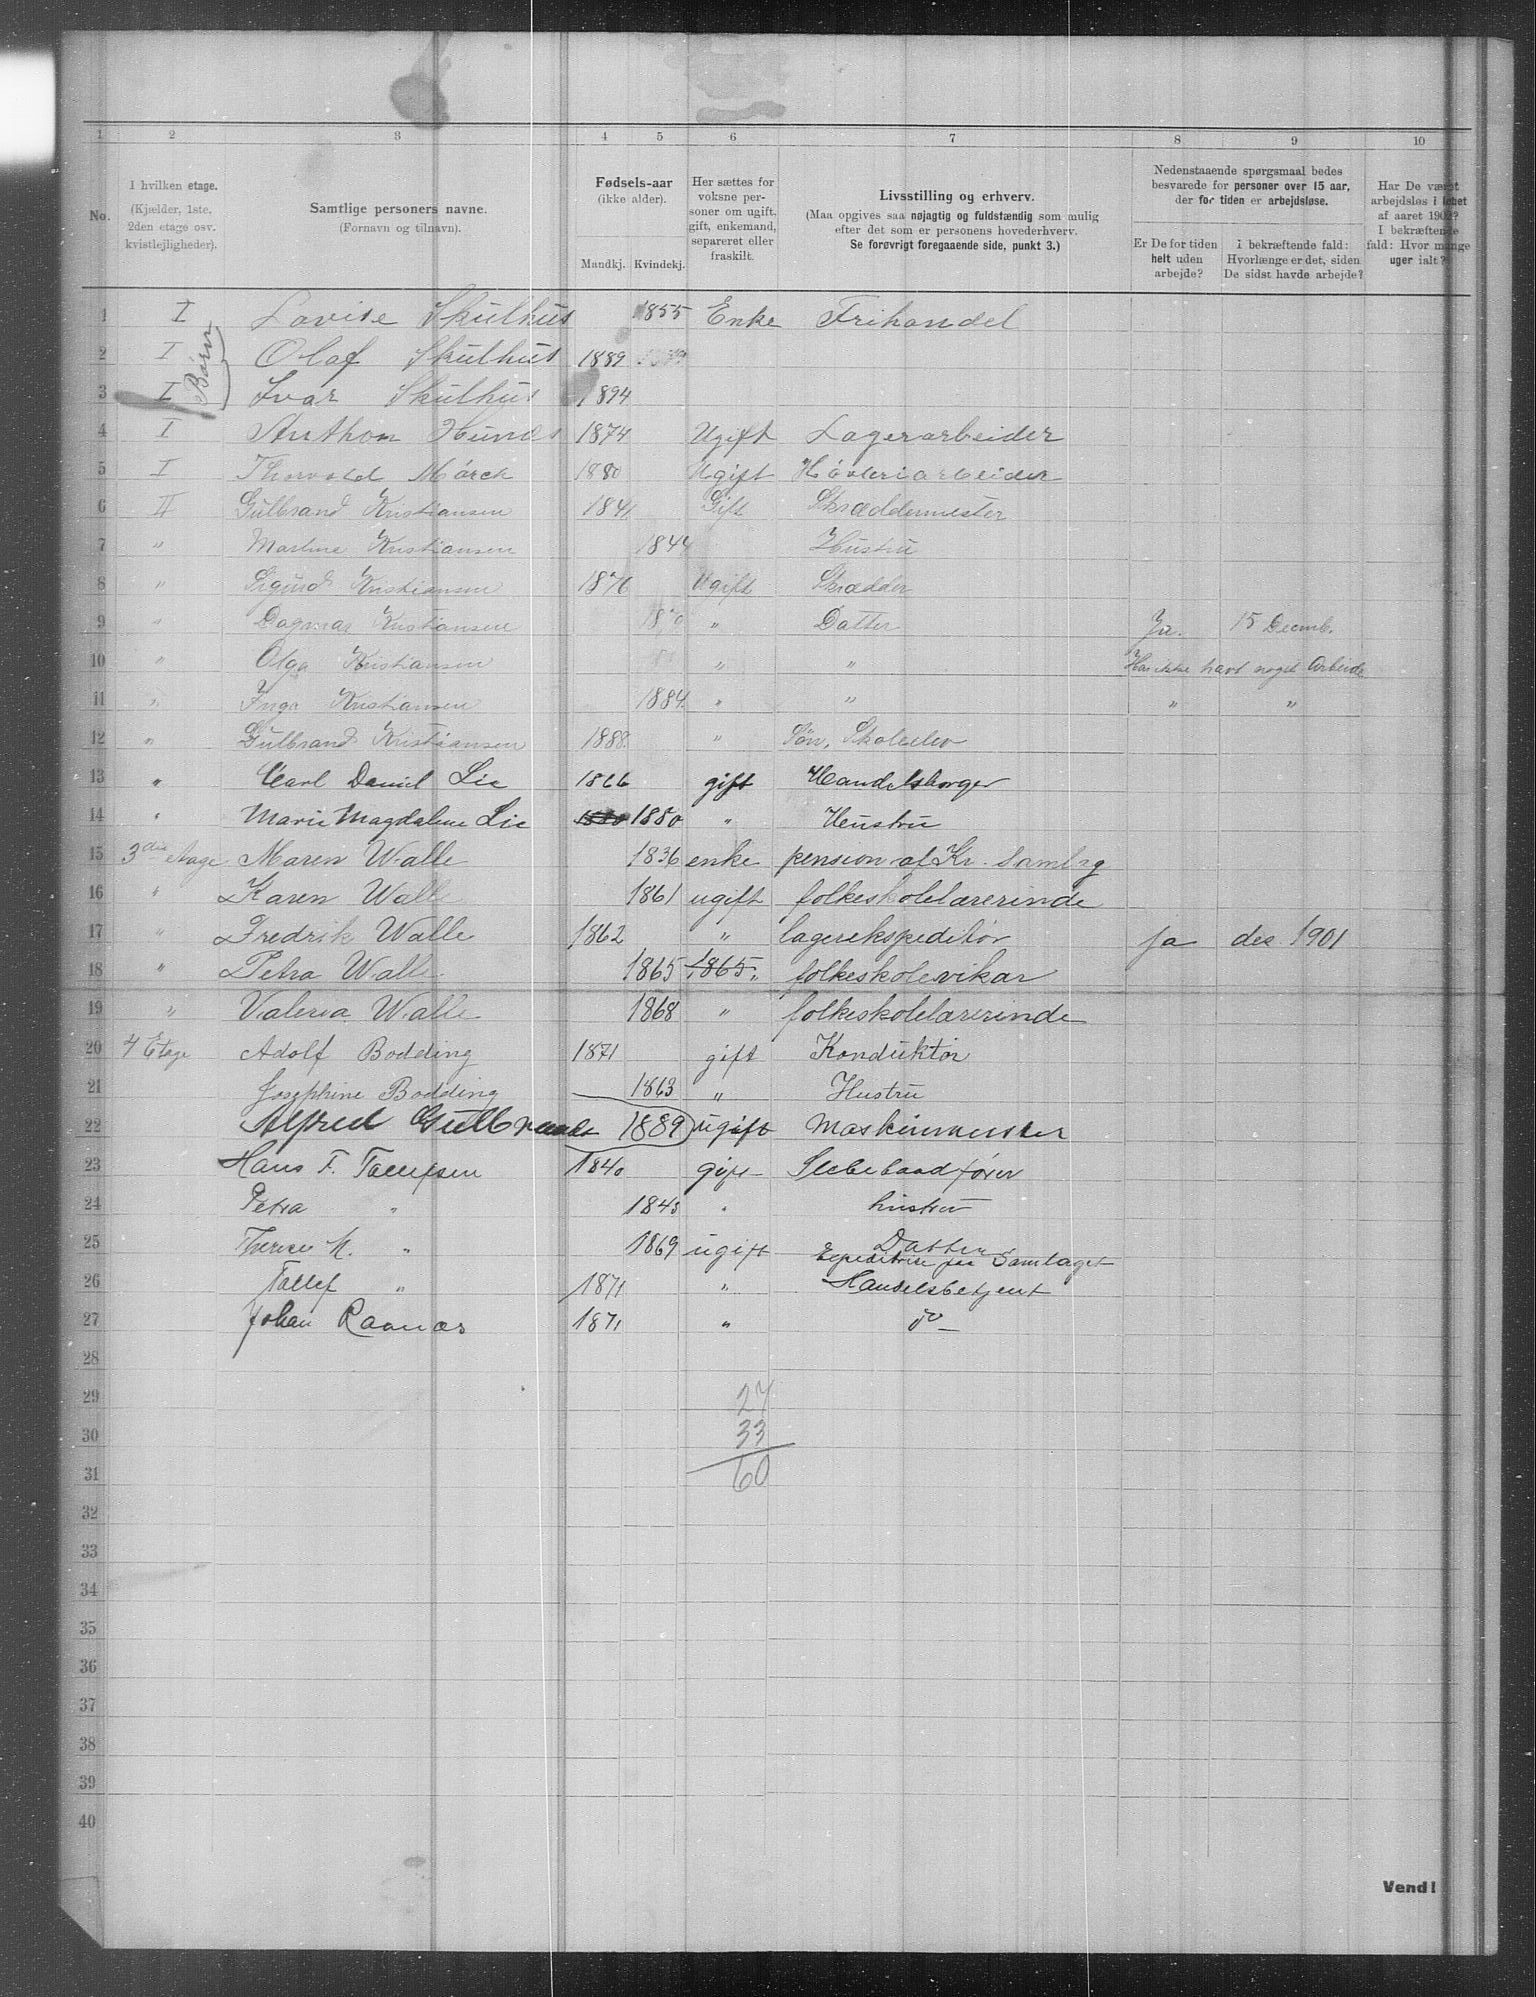 1 2 3 4 5 6 7 8 9 10
No.
I hvilken etage.
(Kjælder, 1ste,
2den etage osv.
kvistlejligheder).
Samtlige personers navne.
(Fornavn og tilnavn).
Fødsels-aar
(ikke alder).
Mandkj. Kvindekj.
Her sættes for
voksne per-
soner om ugift,
gift, enkemand,
separeret eller
fraskilt.
Livsstilling og erhverv.
(Maa opgives saa nøjagtig og fuldstændig som mulig
efter det som er personens hovederhverv.
Se forøvrigt foregaaende side, punkt 3.)
Nedenstaaende spørgsmaal bedes
besvarede for personer over 15 aar,
der for tiden er arbejdsløse.
Er De for tiden
helt uden
arbejde?
i bekræftende fald:
Hvorlænge er det, siden
De sidst havde arbejde?
Har De været
arbejdsløs i løbet
af aaret 1902?
I bekræftende
fald: Hvor mange
uger ialt?
1 I Lovise Skulhus 1855 Enke Frihandel
Børn
2 I Olaf Skulhus 1889
3 I Ivar Skulhus 1894
4 I Anthon Hunæs 1874 Ugift Lagerarbeider
5 I Thorvald Mörck 1880 Ugift Høvleriarbeider
6 II Gulbrand Kristiansen 1841 Gift Skræddermester
7 " Martine Kristiansen 1844 Hustru
8 " Sigurd Kristiansen 1876 Ugift Skrædder
9 " Dagmar Kristiansen " Datter Ja. 15 Decmb.
10 " Olga Kristiansen " " Har ikke havt noget Arbeide
11 " Inga Kristiansen 1884 " " " "
12 " Gulbrand Kristiansen 1888 " Søn, Skoleelev
13 " Carl Daniel Lie 1866 gift Handelsborger
14 " Marie Magdalene Lie 1880 1880 " Heustru
15 3die etage Maren Walle 1836 enke pension af Kr. Samlag
16 " Karen Walle 1861 ugift folkeskolelærerinde
17 " Fredrik Walle 1862 " lagerekspeditør ja des 1901
18 " Petra Walle 1865 1865 " folkeskolevikar
19 " Valeria Walle 1868 " folkeskolelærerinde
20 4 Etage Adolf Bodding 1871 gift Konduktør
21 Josephine Bodding 1863 " Hustru
22 Alfred Gulbrandt 1889 ugift Maskinmester
23 Hans F. Tallefsen 1840 gift Slebebaadfører
24 Petra " 1843 " hustru
25 Therese M. " 1869 ugift Datter
Expeditrise paa Samlaget
26 Tallef " 1871 " Handelsbetjent
27 Johan Raanæs 1871 " do
28
29 27
30 33
31 60
32
33
34
35
36
37
38
39
40
Vend!